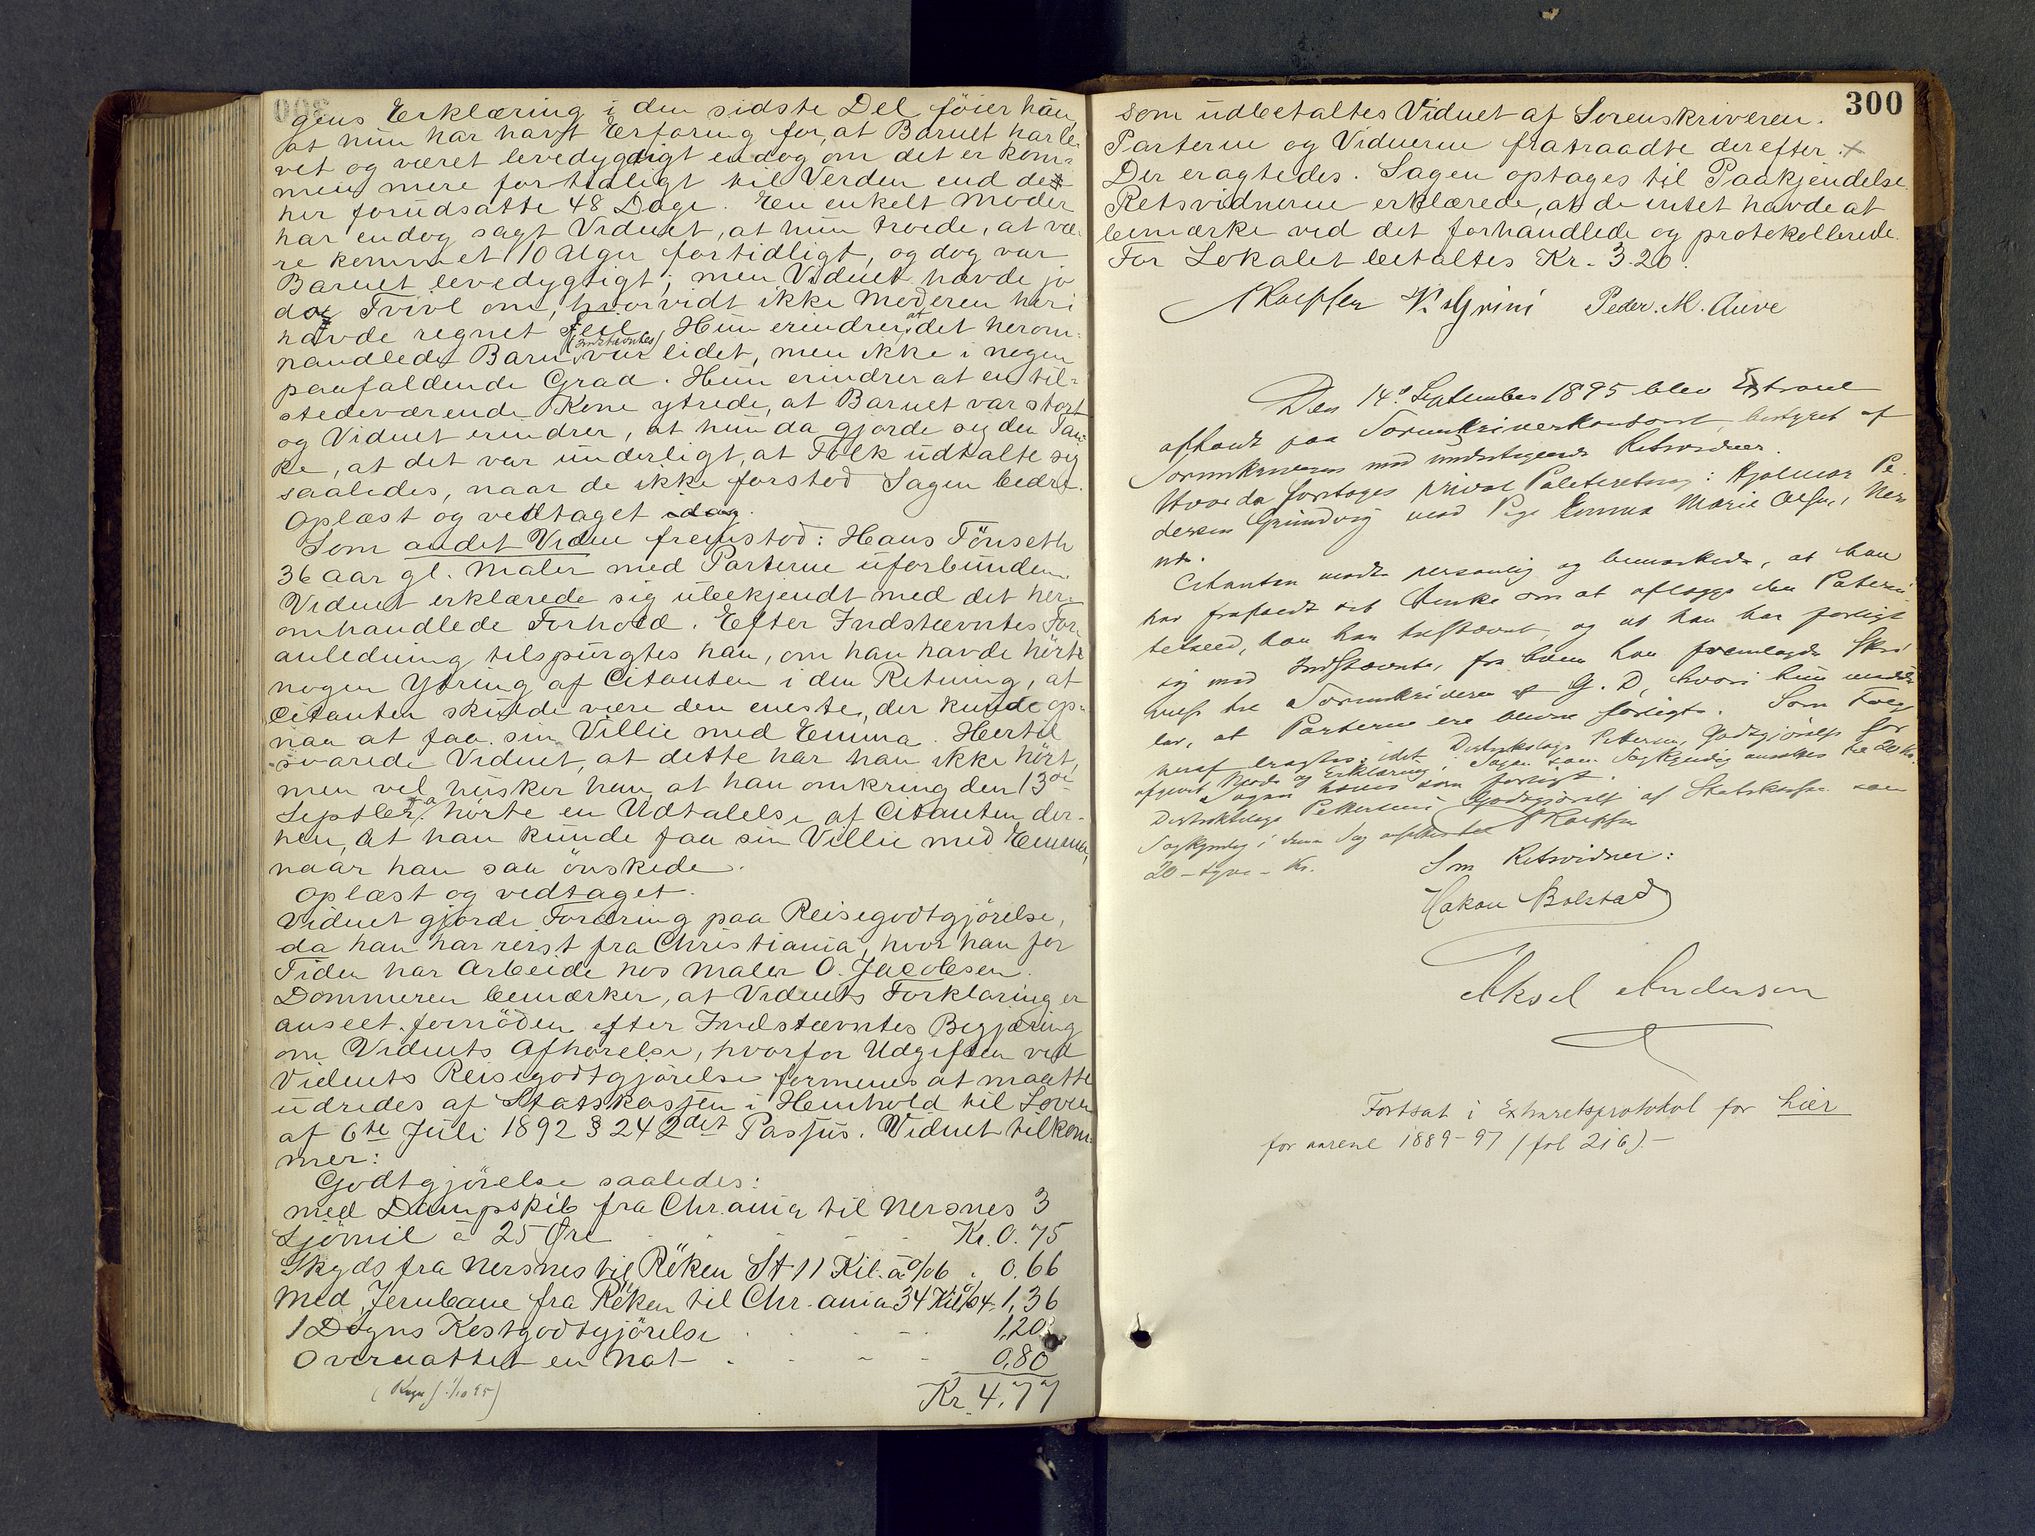 gens Erklæring i den sidste Del föier hun,
at hun har havt Erfaring for, at Barnet har le-
vet og været levedygtigt endog om det er kom-
men mere fortidligt til Verden end de
her forudsatte 48 Dage. En enkelt Moder
har endog sagt Vidnet, at hun troede, at væ-
re kommet 10 Uger fortidligt, og dog var
Barnet levedygtigt; men Vidnet havde jo
da Tvivl om, hvorvidt ikke Moderen heri
havde regnet feil. Hun erindrer at det herom-
handlede Barn (Indstævntes) var lidet, men ikke i nogen
paafaldende Grad. Hun erindrer at en til-
stedeværende Kone ytrede, at Barnet var stort
og Vidnet erindrer, at hun da gjorde sig den Tan-
ke, at det var underligt, at Folk udtalte sig
saaledes, naar de ikke forstod Sagen bedre.
Oplæst og vedtaget idag.
Som andet Vidne fremstod: Hans Tönseth
36 Aar gl. Maler med Parterne uforbunden.
Vidnet erklærede sig ubekjendt med det her-
omhandlede Forhold. Efter Indstævntes For-
anledning tilspurgtes han, om han havde hört
nogen Ytring af Citanten i den Retning, at
Citanten skulde være den eneste, der kunde op-
naa at faa sin Villie med Emma. Hertil
svarede Vidnet, at dette har han ikke hört,
men vel husker han at han omkring den 13de
Septbr. f. a. hörte en Udtalelse af Citanten der-
hen, at han kunde faa sin Villie med Emma,
naar han saa önskede.
Oplæst og vedtaget.
Vidnet gjorde Fordring paa Reisegodtgjörelse,
da han har reist fra Christiania, hvor han for
Tiden har Arbeide hos Maler O. Jacobsen.
Dommeren bemærker, at Vidnets Forklaring er
anseet fornöden efter Indstævntes Begjæring
om Vidnets Afhörelse, hvorfor Udgiften ved
Vidnets Reisegodtgjörelse formenes at maatte
udredes af Statskassen i Henhold til Loven
af 6te Juli 1892 § 24 2det Passus. Vidnet tilkom-
mer:
Godtgjörelse saaledes:
med Dampskib fra Chr.ania til Nersnes 3
Sjömil á 25 Øre Kr. 0.75
Skyds fra Nersnes til Röken St 11 Kil. á 0/06 . 0.66
Med Jernbane fra Röken til Chr.ania 34 Kil 0/04. 1,36
1 Døgns Kostgodtgjörelse 1,20
Overnattet en Nat 0,80
(Regn f. 1/10 95)
Kr. 4,77
300
som udbetaltes Vidnet af Sorenskriveren.
Parterne og Vidnerne fratraadte derefter. ×
Der eragtedes. Sagen optages til Paakjendelse.
Retsvidnerne erklærede, at de intet havde at
bemærke ved det forhandlede og protokollerede.
For Lokalet betaltes Kr. 3.20.
V. Grini Peder. M. Auve
Den 14de September 1895 blev Extraret
afholdt paa Sorenskriverkontoret, bestyret af
Sorenskriveren med undertegnede Retsvidner.
Hvorda foretoges privat Paternitetssag: Hjalmar Pe-
dersen Grundvig mod Pige Emma Marie Olsen, Ners
nes.
Citanten mødte personlig og bemærkede, at han
har frafaldt sit Ønske om at aflægge den Paterni-
tetseed, han har tilstævnet, og at han har forligt
sig med Indstævnte, fra hvem han fremlagde Skri-
velse til Sorenskriveren af G. D, hvori hun medde-
ler, at Parterne ere blevne forligte. Som Følge
heraf eragtes: idet Distriktslæge Pettersens Godtgjørelse for
afgivet Møde og Erklæring i Sagen som Sagkyndig ansættes til 20 Kr.
Sagen hæves som forligt.
Distriktslæge Pettersens Godtgjørelse af Statskassen som
Sagkyndig i denne Sag ansættes til
20 – tyve – Kr.
Som Retsvidner:
Hakon Bolstad
Aksel Andersen
Fortsat i Extraretsprotokol for Lier
for aarene 1889–97 (fol 216).–